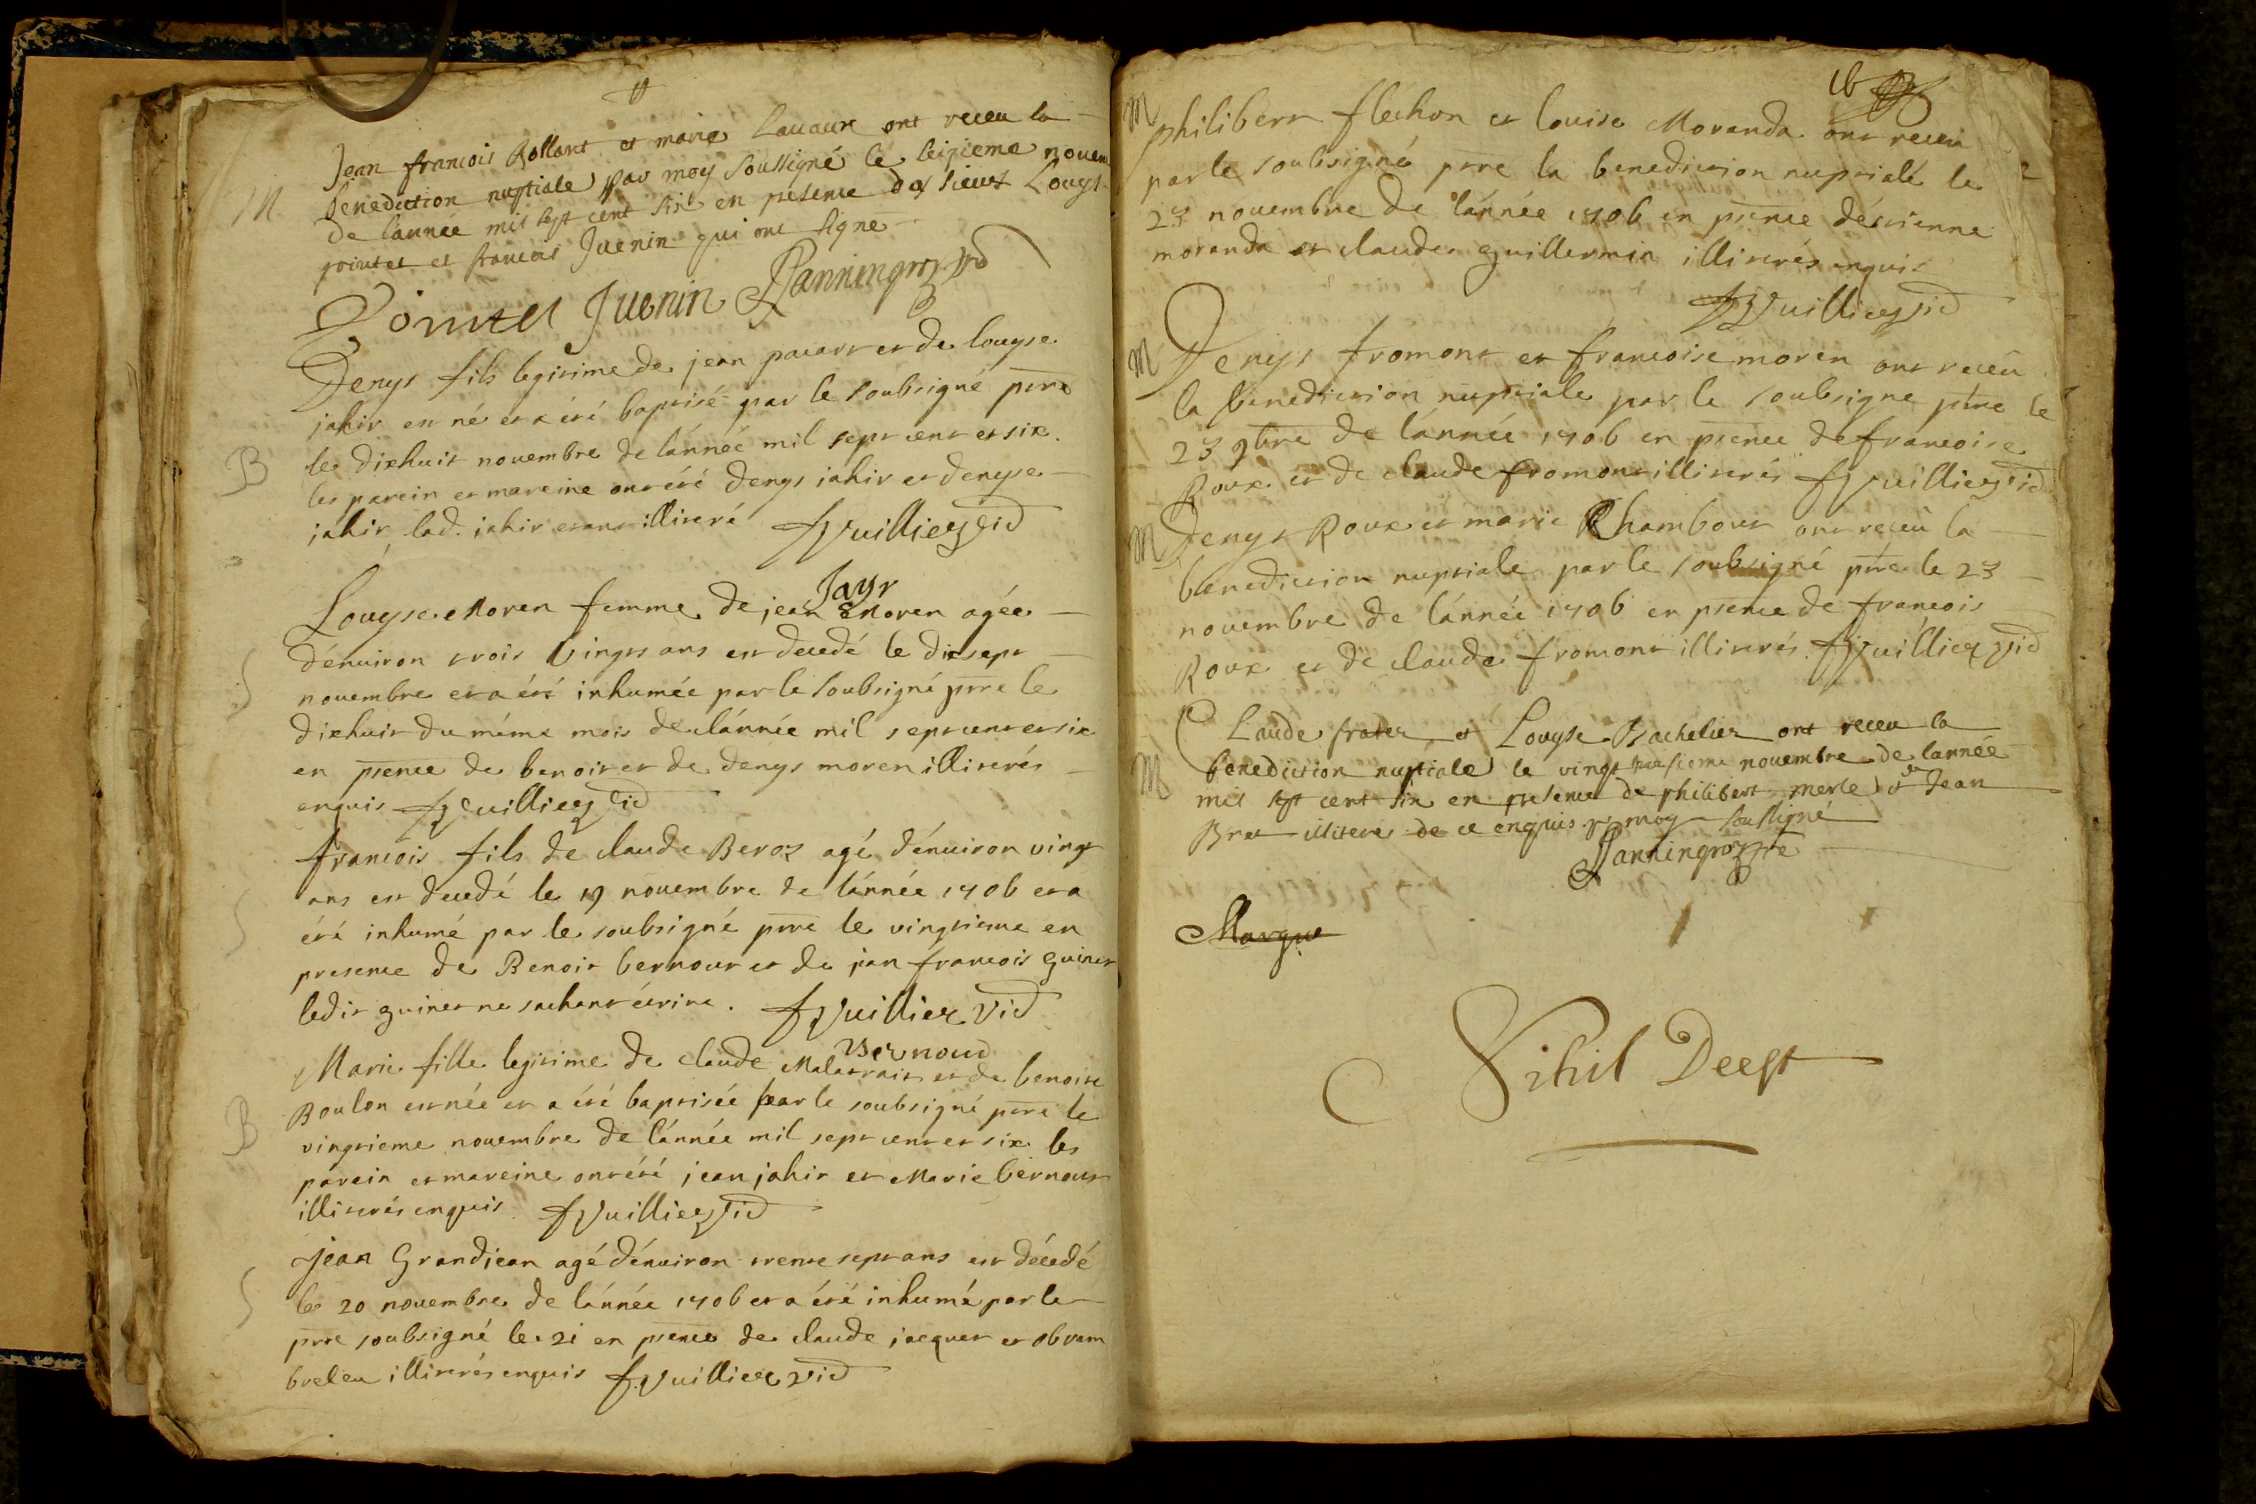 M
Jean francois Rollant et marie Lauaure ont receu la
benediction nuptiale par moy soussigné le seizieme nouem
de lannée mil sept cent six en presence des sieurs Louys
pointet et francois Juenin qui ont signe
Pointet Juenin
B
Denys fils legitime de jean pacart et de louyse
jahir est né et a été baptisé par le soubsigné ptre
le dixhuit nouembre de lánnée mil sept cent et six.
les parein et mareine ont été denys jahir et denyse
jahir lad. jahir etant illiteré f Vuillier vic
S
Jayr
Louyse Moren femme de jean Moren agée
dénuiron trois vingts ans est decedé le dixsept
nouembre et a été inhumée par le soubsigné ptre le
dixhuit du méme mois de lánnée mil sept cent et six
en pśence de benoit et de denys moren illiterés
enquis f Vuillier vic
S
francois fils de claude Beroz agé dénuiron vingt
ans est decedé le 19 nouembre de lánnée 1706 et a
été inhumé par le soubsigné ptre le vingtieme en
presence de Benoit bernout et de jean francois guinet
ledit guinet ne sachant écrire. f Vuillier vic
B
Bernoud
Marie fille legitime de claude Malatrait et de benoite
Boulon est née et a été baptisée par le soubsigné ptre le
vingtieme nouembre de lánnée mil sept cent et six les
parein et mareine ont été jean jahir et Marie bernout
illiterés enquis f Vuillier vic
S
jean Grandjean agé dénuiron trente sept ans est décedé
le 20 nouembre de lánnée 1706 et a été inhumé par le
ptre soubsigné le 21 en pśence de claude jacquet et
breleu illiterés enquis f. Vuillier vic
16
M
philibert flechon et louise Moranda ont receu
par le soubsigné ptre la benediction nuptiale le
23 nouembre de lánnée 1706 en pśence détienne
moranda et claude guillermin illiterés enquis
f Vuillier vic
M
Denys fromont et francoise moren ont receu
la benediction nuptiale par le soubsigne ptre le
23 9bre de lánnée 1706 en pśence de francois
Roux et de claude fromont illiterés f Vuillier vic
M
Denys Roux et marie Chambour ont receu la
benediction nuptiale par le soubsigné ptre le 23
nouembre de lánnée 1706 en pśence de francois
Roux et de claude fromont illiterés. f Vuillier vic
M
Claude frater et Louyse Bachelier ont receu la
benediction nuptiale le vingt troisieme nouembre de lannée
mil sept cent six en presence de philibert merle et de Jean
Brea illiteré de ce enquis p moy soussigné
Margue
Nihil Deest